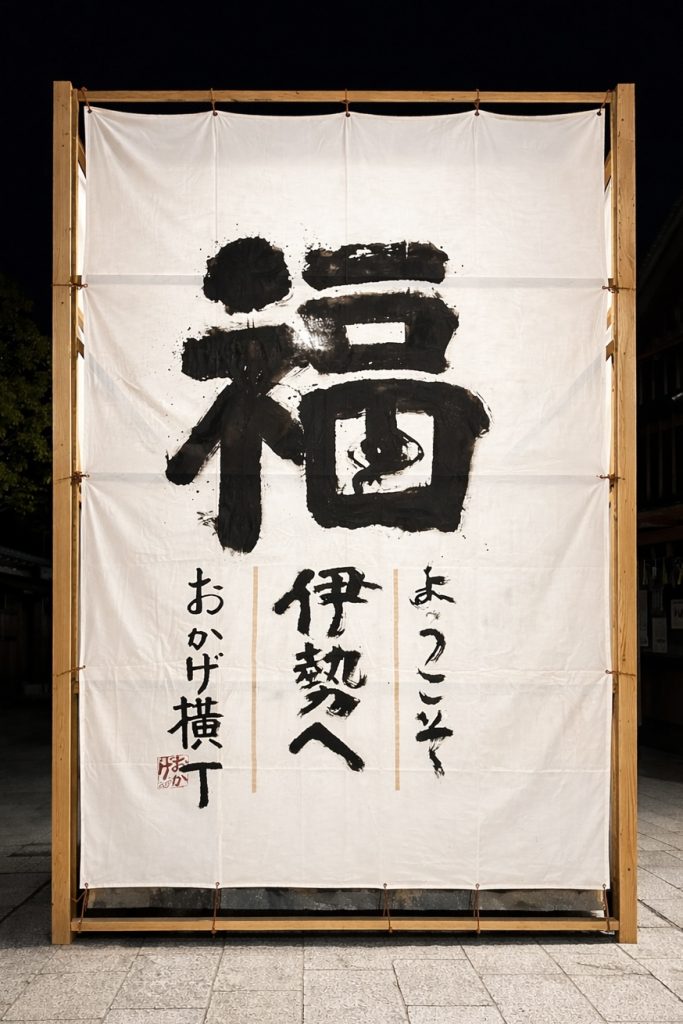 福
ようこそ
伊勢へ
おかげ横丁
おかげ